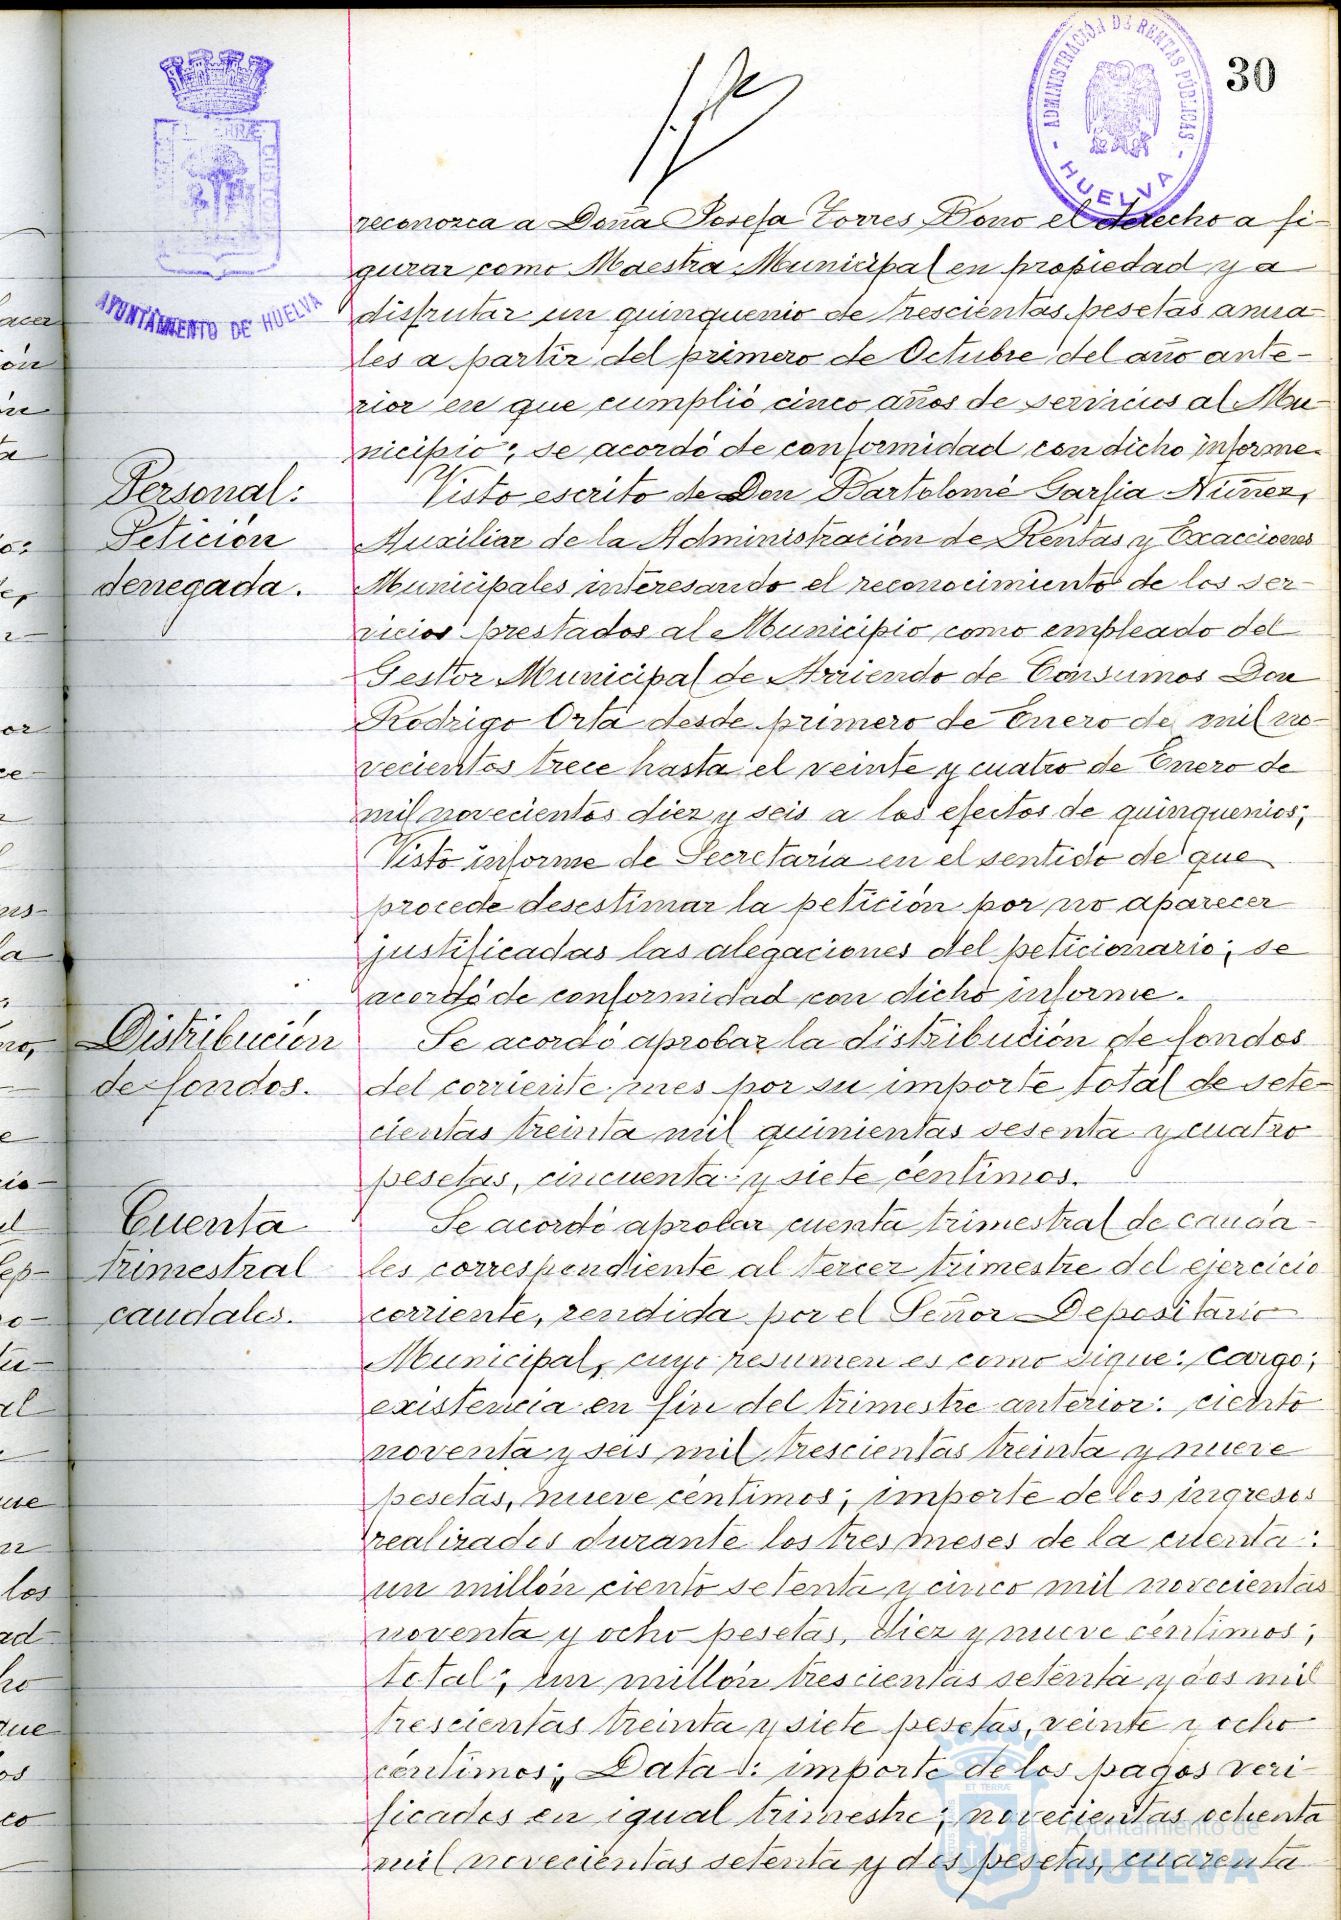 30
ADMINISTRACIÓN DE RENTAS PÚBLICAS
- HUELVA -
ET TERRÆ CUSTO
AYUNTAMIENTO DE HUELVA
reconozca a Doña Josefa Torres Bono el derecho a fi-
gurar como Maestra Municipal en propiedad y a
disfrutar un quinquenio de trescientas pesetas anua-
les a partir del primero de Octubre del año ante-
rior en que cumplió cinco años de servicios al Mu-
nicipio; se acordó de conformidad con dicho informe.
Personal:
Petición
denegada.
Visto escrito de Don Bartolomé Garfia Núñez,
Auxiliar de la Administración de Rentas y Exacciones
Municipales interesando el reconocimiento de los ser-
vicios prestados al Municipio como empleado del
Gestor Municipal de Arriendo de Consumos Don
Rodrigo Orta desde primero de Enero de mil no-
vecientos trece hasta el veinte y cuatro de Enero de
mil novecientos diez y seis a los efectos de quinquenios;
Visto informe de Secretaría en el sentido de que
procede desestimar la petición por no aparecer
justificadas las alegaciones del peticionario; se
acordó de conformidad con dicho informe.
Distribución
de fondos.
Se acordó aprobar la distribución de fondos
del corriente mes por su importe total de sete-
cientas treinta mil quinientas sesenta y cuatro
pesetas, cincuenta y siete céntimos.
Cuenta
trimestral
caudales.
Se acordó aprobar cuenta trimestral de cauda-
les correspondiente al tercer trimestre del ejercicio
corriente, rendida por el Señor Depositario
Municipal, cuyo resumen es como sigue: cargo;
existencia en fin del trimestre anterior: ciento
noventa y seis mil trescientas treinta y nueve
pesetas, nueve céntimos; importe de los ingresos
realizados durante los tres meses de la cuenta:
un millón ciento setenta y cinco mil novecientas
noventa y ocho pesetas, diez y nueve céntimos;
total; un millón trescientas setenta y dos mil
trescientas treinta y siete pesetas, veinte y ocho
céntimos; Data: importe de los pagos veri-
ficados en igual trimestre; novecientas ochenta
mil novecientas setenta y dos pesetas, cuarenta
ET TERRÆ
Ayuntamiento de
HUELVA